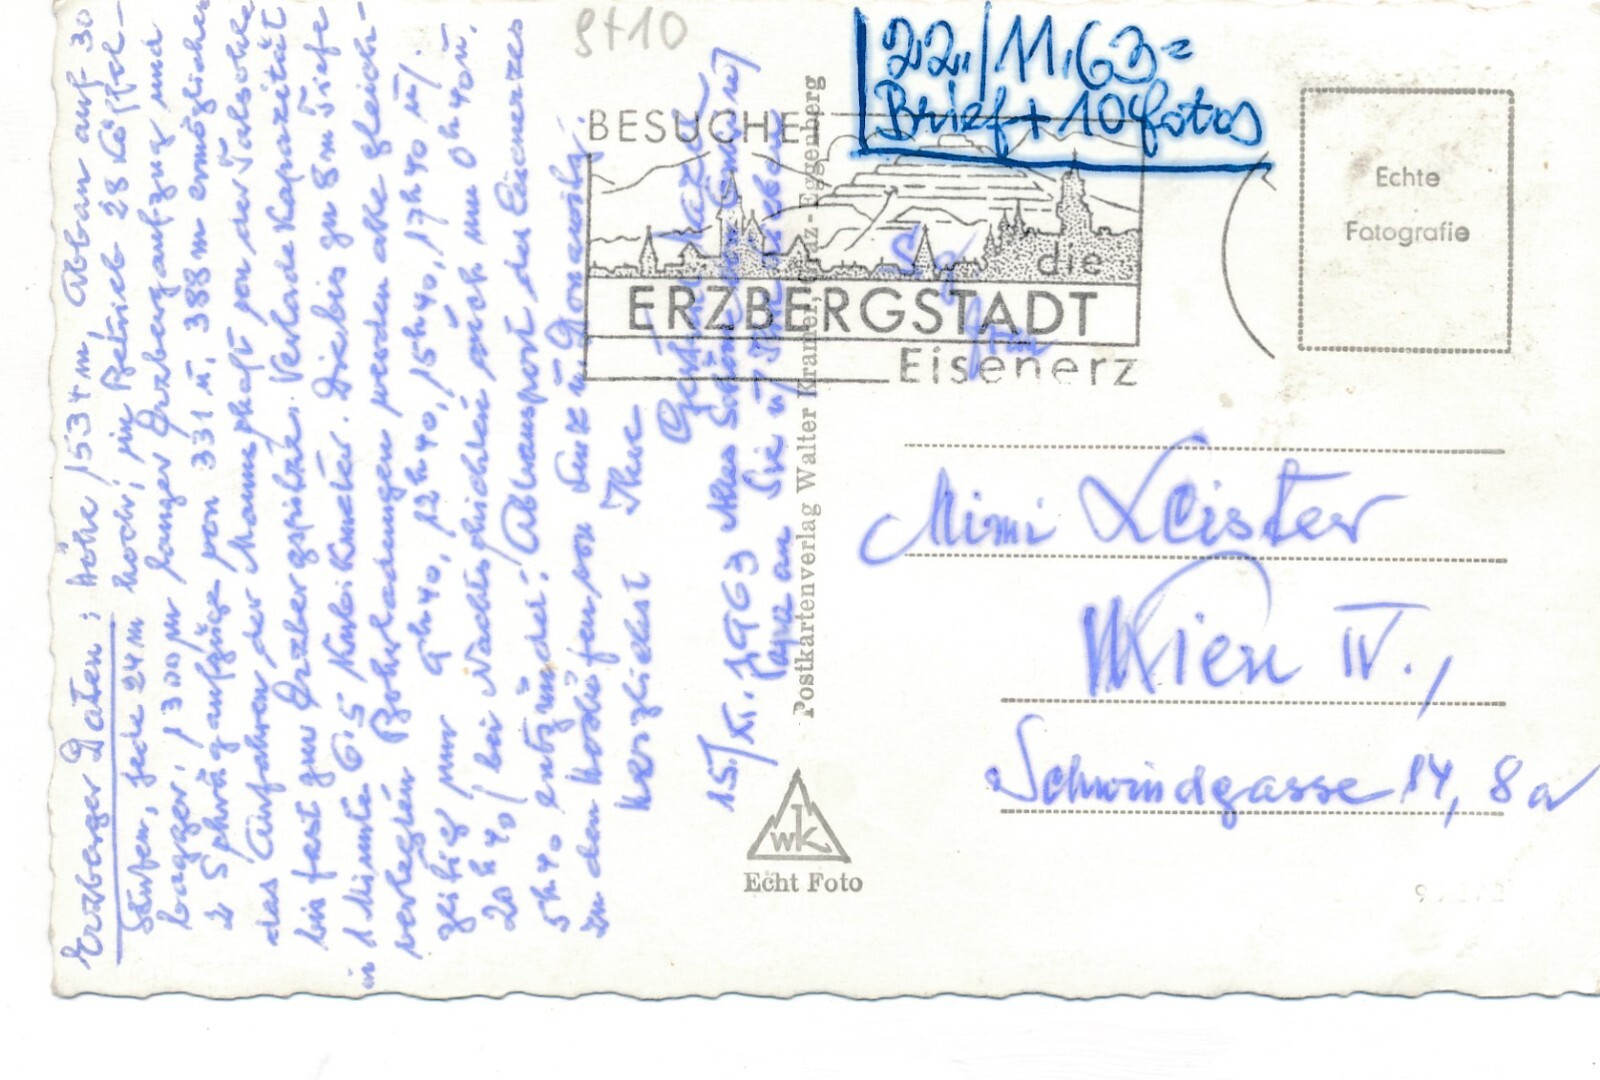 9+10
22./11.63=
Brief + 10 Fotos
BESUCHE
die
ERZBERGSTADT
Eisenerz
Echte
Fotografie
Erzberger Daten: Höhe 1534 m, Abbau auf 30
Stufen, jede 24 m hoch, in Betrieb 28 Löffel-
bagger, 1300 m langer Erzbergaufzug und
2 Schrägaufzüge von 331 u. 388 m ermöglichen
das Auffahren der Mannschaft von der Talsohle
bis fast zur Erzbergspitze. Verlade Kapazität
in 1 Minute 6,5 Kubikmeter. Die bis zu 8 m Tiefe
verlegten Bohrladungen werden alle gleich-
zeitig nur 9h40, 12h40, 15h40, 17h40 u.
20h40/ bei Nachtschichten auch um 0h40 u.
5h40 entzündet. Abtransport des Eisenerzes
zu den Hochöfen von Linz u. Donawitz.
Herzlichst Ihre
15./XI.1963 Alles Schöne
Sie u.
Postkartenverlag Walter Kramer, Graz-Eggenberg
WK
Echt Foto
Mimi Leister
Wien IV.,
Schwindgasse 14, 8a